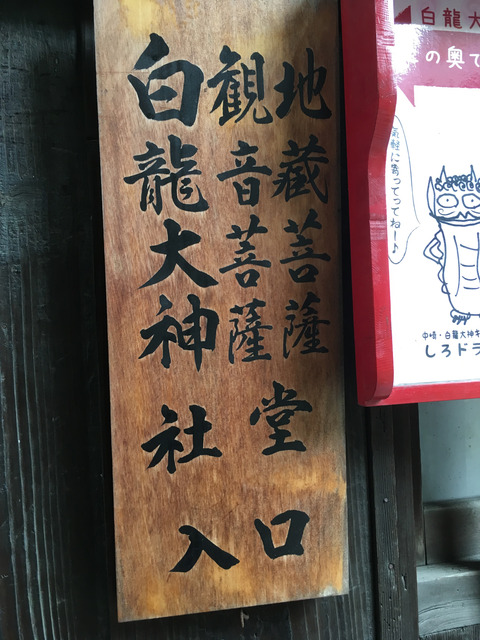 地藏菩薩
観音菩薩
堂
白龍大神社
入口
白龍大
の奥で
気軽に寄ってってねー♪
中崎・白龍大神キ
しろドラ